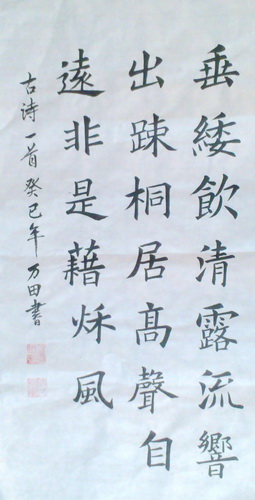 垂緌飲清露流響
出踈桐居高聲自
遠非是藉秌風
古诗一首癸巳年万田書